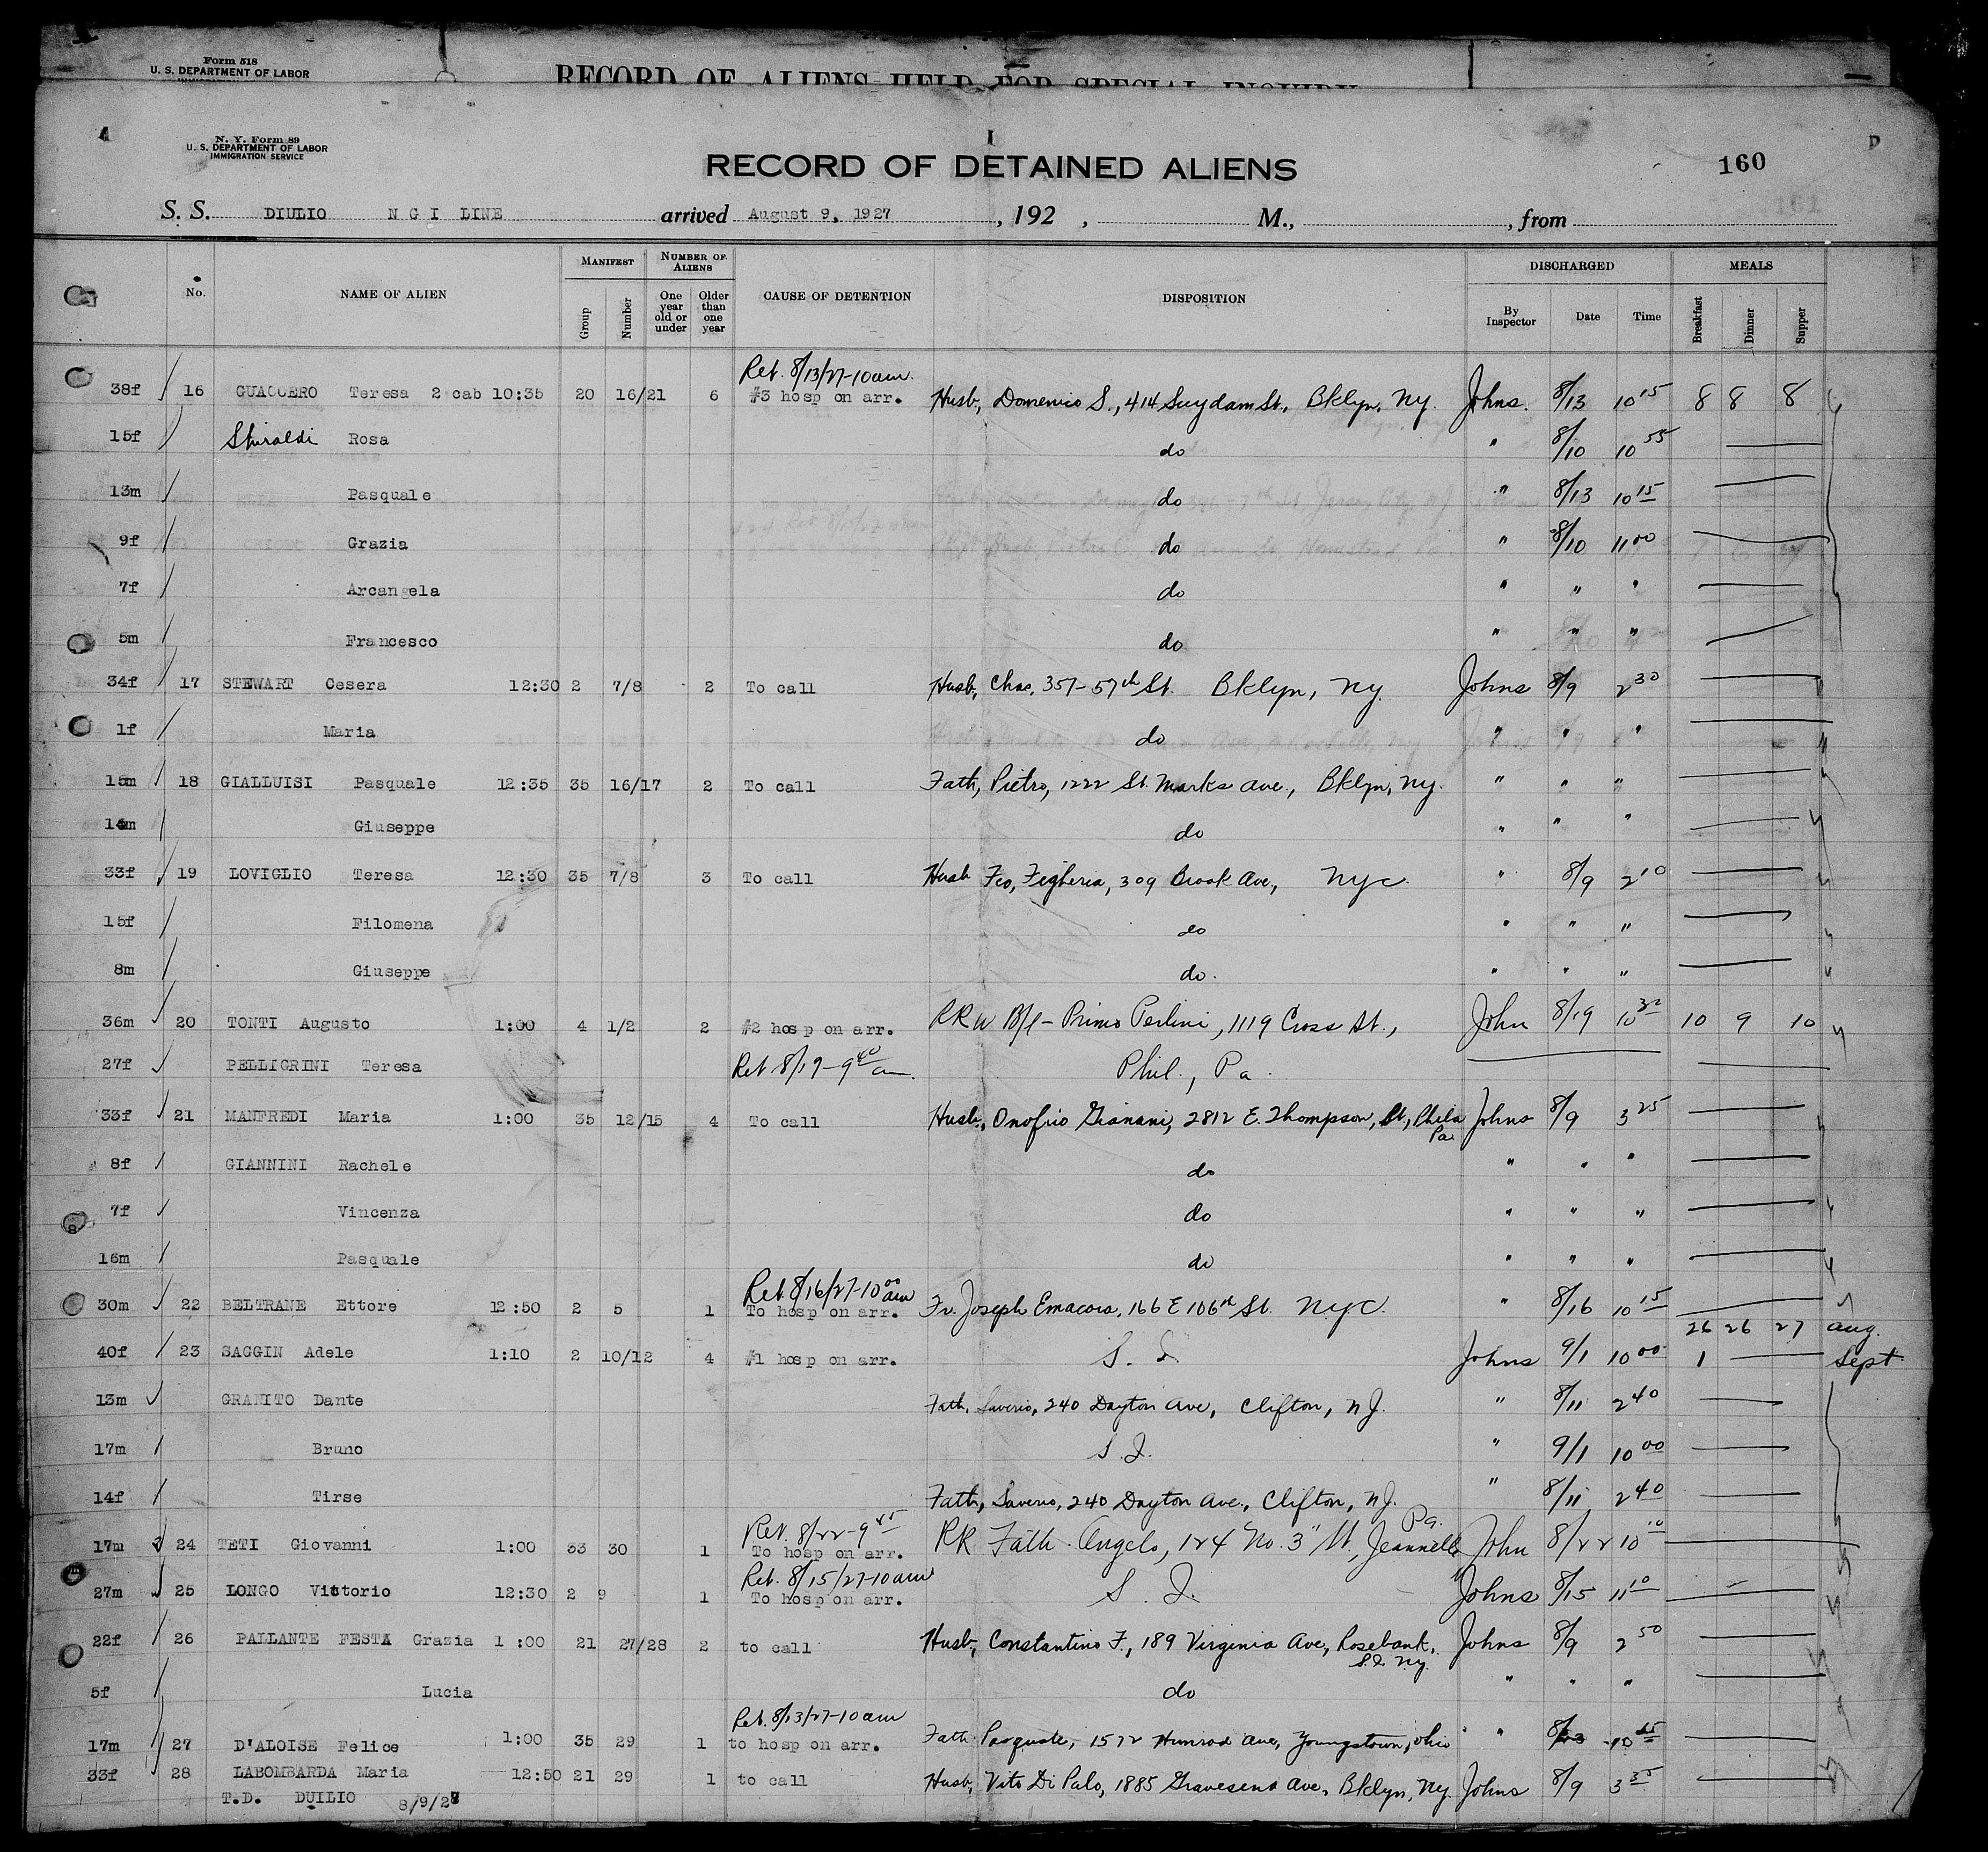 Form 518
U. S. DEPARTMENT OF LABOR
RECORD OF ALIENS HELD FOR SPECIAL INQUIRY
N. Y. Form 89
U. S. DEPARTMENT OF LABOR
IMMIGRATION SERVICE
RECORD OF DETAINED ALIENS
160
S. S. DIULIO N G I LINE arrived August 9, 1927, 192 , M., , from
No. NAME OF ALIEN MANIFEST Group Number NUMBER OF ALIENS One year old or under Older than one year CAUSE OF DETENTION DISPOSITION DISCHARGED By Inspector Date Time MEALS Breakfast Dinner Supper
Ret. 8/13/27-10am.
38f 16 GUACCERO Teresa 2 cab 10:35 20 16/21 6 #3 hosp on arr. Husb, Domenico S., 414 Suydam St., Bklyn, Ny. Johns. 8/13 10 15 8 8 8
15f Shiraldi Rosa do " 8/10 10 55
13m Pasquale do " 8/13 10 15
9f Grazia do " 8/10 11 00
7f Arcangela do " " "
5m Francesco do " " "
34f 17 STEWART Cesera 12:30 2 7/8 2 To call Husb, Chas, 357-57th St. Bklyn, Ny. Johns 8/9 2 30
1f Maria do " " "
15m 18 GIALLUISI Pasquale 12:35 35 16/17 2 To call Fath, Pietro, 1222 St. Marks ave., Bklyn, Ny. " " "
14m Giuseppe do " " "
33f 19 LOVIGLIO Teresa 12:30 35 7/8 3 To call Husb Fco, Fegheria, 309 Brook Ave, Nyc. " 8/9 2 10
15f Filomena do " " "
8m Giuseppe do. " " "
36m 20 TONTI Augusto 1:00 4 1/2 2 #2 hosp on arr. RRW B/l - Primo Perlini, 1119 Cross St., John 8/19 10 30 10 9 10
27f PELLIGRINI Teresa Ret 8/19-9 40 am. Phil., Pa.
33f 21 MANFREDI Maria 1:00 35 12/15 4 To call Husb., Onofrio Gianani, 2812 E. Thompson, St., Phila Pa. Johns 8/9 3 25
8f GIANNINI Rachele do " " "
7f Vincenza do " " "
16m Pasquale do " " "
Ret 8/16/27-10 00 am
30m 22 BELTRANE Ettore 12:50 2 5 1 To hosp on arr. Fr. Joseph Emacora, 166 E 106th St. Nyc. " 8/16 10 15
26 26 27 aug.
40f 23 SAGGIN Adele 1:10 2 10/12 4 #1 hosp on arr. S. I. Johns 9/1 10 00 1 Sept.
13m GRANITO Dante Fath, Saverio, 240 Dayton ave, Clifton, N.J. " 8/11 2 40
17m Bruno S. I. " 9/1 10 00
14f Tirse Fath, Saverio, 240 Dayton ave., Clifton, N.J. " 8/11 2 40
Ret. 8/22-9 45
17m 24 TETI Giovanni 1:00 33 30 1 To hosp on arr. RR Fath Angelo, 124 No. 3" St., Jeannette Pa. John 8/22 10 10
Ret. 8/15/27-10am
27m 25 LONGO Vittorio 12:30 2 9 1 To hosp on arr. S. I. Johns 8/15 11 10
22f 26 PALLANTE FESTA Grazia 1:00 21 27/28 2 to call Husb, Constantino F., 189 Virginia Ave, Rosebank, S.I. Ny. Johns 8/9 2 50
5f Lucia do " " "
Ret. 8/13/27-10am
17m 27 D'ALOISE Felice 1:00 35 29 1 to hosp on arr. Fath Pasquale, 1572 Himrod Ave, Youngstown, Ohio " 8/13 10 15
33f 28 LABOMBARDA Maria 12:50 21 29 1 to call Husb, Vito Di Palo, 1885 Gravesend Ave, Bklyn, Ny. Johns 8/9 3 35
T.D. DUILIO 8/9/27